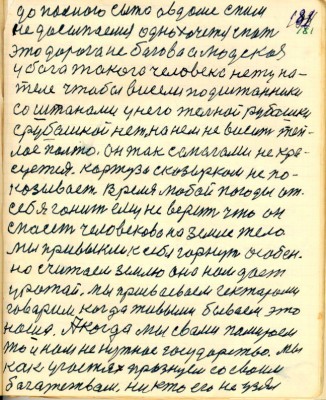 до полного сыто авдоше спим
не досыпаем однохочем спат
это дорога не багова а людская
у бога такого человека нету на-
теле чтобы висели подштанники
со штанами у него желной рубашки
с рубашкой нет на нем не висит теп-
лое полто. он так сапагами не кра-
суется картуза скозырком не по-
казывает время любой погоды от.
себя гонит ему не верит что он
спасеть человекова на земле тело
мы привыкли к себе горнут особен.
но считаем землю она нам дает
урожай, мы присваеваем гектарами
говарим когда живыми бываем это
наша. А когда мы свами памираем
то и нам не нужное государство. мы
как участки празнуем со своим
багатством. никто его не узял